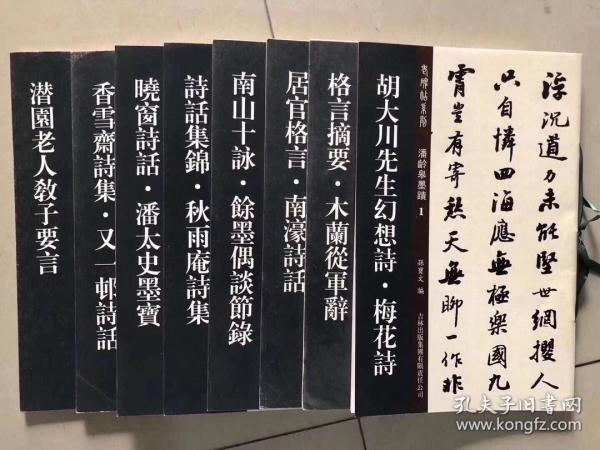 浮沉道力未能堅世網攖人
只自憐四海應無極樂國九
霄豈有寄愁天無聊一作非
老碑帖系列
潘齡皋墨蹟1
孫寶文 編
吉林出版集團有限責任公司
胡大川先生幻想詩・梅花詩
格言摘要・木蘭從軍辭
居官格言・南濠詩話
南山十詠・餘墨偶談節錄
詩話集錦・秋雨庵詩集
曉窗詩話・潘太史墨寶
香雪齋詩集・又一邨詩話
潜園老人敎子要言
孔夫子旧书网
www.kongfz.com